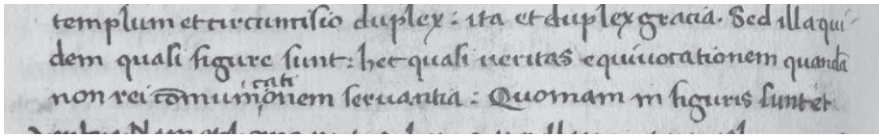 templum et circumcisio duplex: ita et duplex gracia. Sed illa qui
dem quasi figure sunt: hec quasi ueritas equiuocationem quandā
non rei cōmunicationem seruantia: Quoniam in figuris sunt et